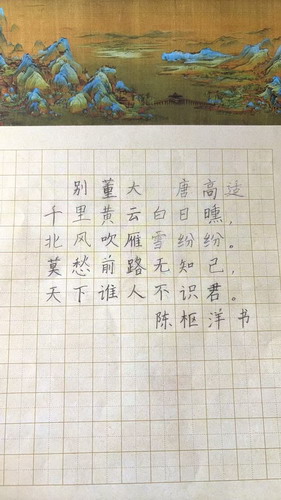 别董大 唐高适
千里黄云白日曛,
北风吹雁雪纷纷。
莫愁前路无知己,
天下谁人不识君。
陈枢洋书